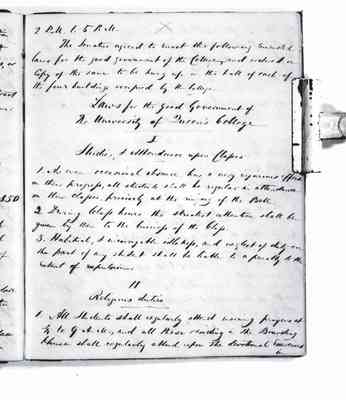 2 P.M. to 5 P.M.
The Senatus agreed to enact the following
laws for the good government of the College, and ordered a
copy of the same to be hung up in the hall of each of
the four buildings occupied by the College
Laws for the Good Government of
The University of Queen's College
I
Studies, & Attendance upon Classes
1. As even occasional absence has a very injurious effect
on their progress, all students shall be regular in attendance
on their classes, precisely at the ringing of the Bell.
2. During Class hours the strictest attention shall be
given by them to the business of the Class.
3. Habitual, & incorrigible idleness, and neglect of duty on
the part of any student shall be liable to a penalty to the
extent of expulsion.
II
Religious duties
1. All Students shall regularly attend morning prayers at
to 9 A.M., and all those residing in the Boarding
House shall regularly attend upon the devotional Exercises
$50